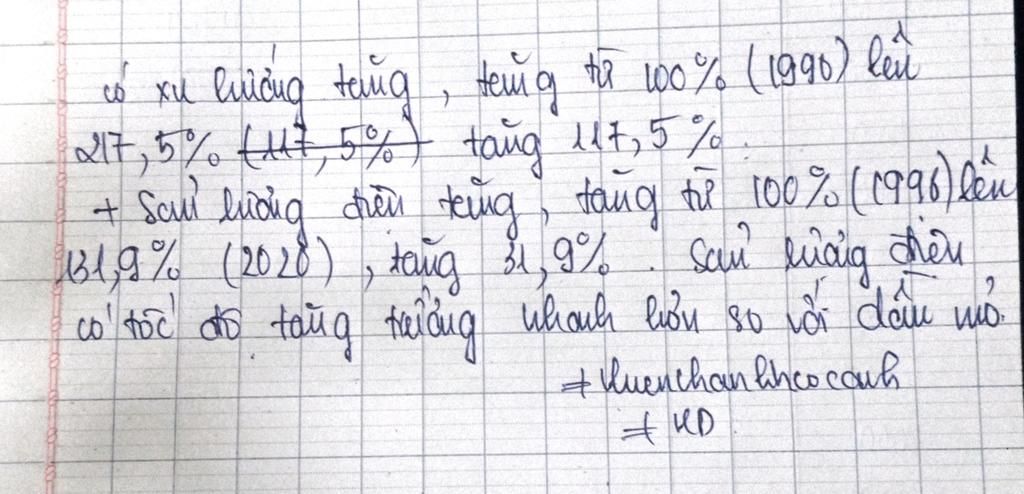 có xu hướng tăng, tăng từ 100% (1990) lên
217,5% (117,5%) tăng 117,5%.
+ Sản lượng điện tăng, tăng từ 100% (1990) lên
131,9% (2020), tăng 31,9%. Sản lượng điện
có tốc độ tăng trưởng nhanh hơn so với dầu mỏ.